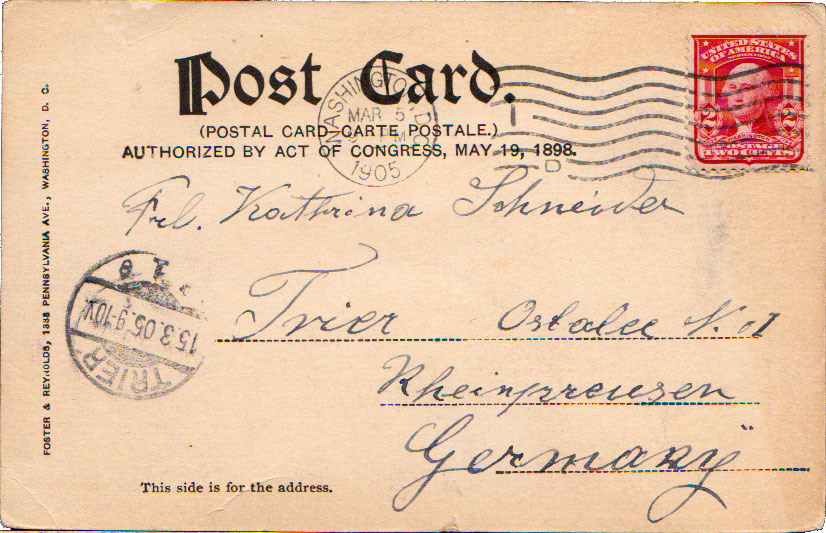 Post Card.
(POSTAL CARD-CARTE POSTALE.)
AUTHORIZED BY ACT OF CONGRESS, MAY 19, 1898.
WASHINGTON, D.C.
MAR 5
M
1905
UNITED STATES OF AMERICA
SERIES 1902
2 2
WASHINGTON
POSTAGE
TWO CENTS
1
D
Frl. Kathrina Schneider
Trier Ostalee N.
Rheinpreusen
Germanÿ
TRIER
15.3.05.9-10V.
1
FOSTER & REYNOLDS, 1338 PENNSYLVANIA AVE., WASHINGTON, D. C.
This side is for the address.